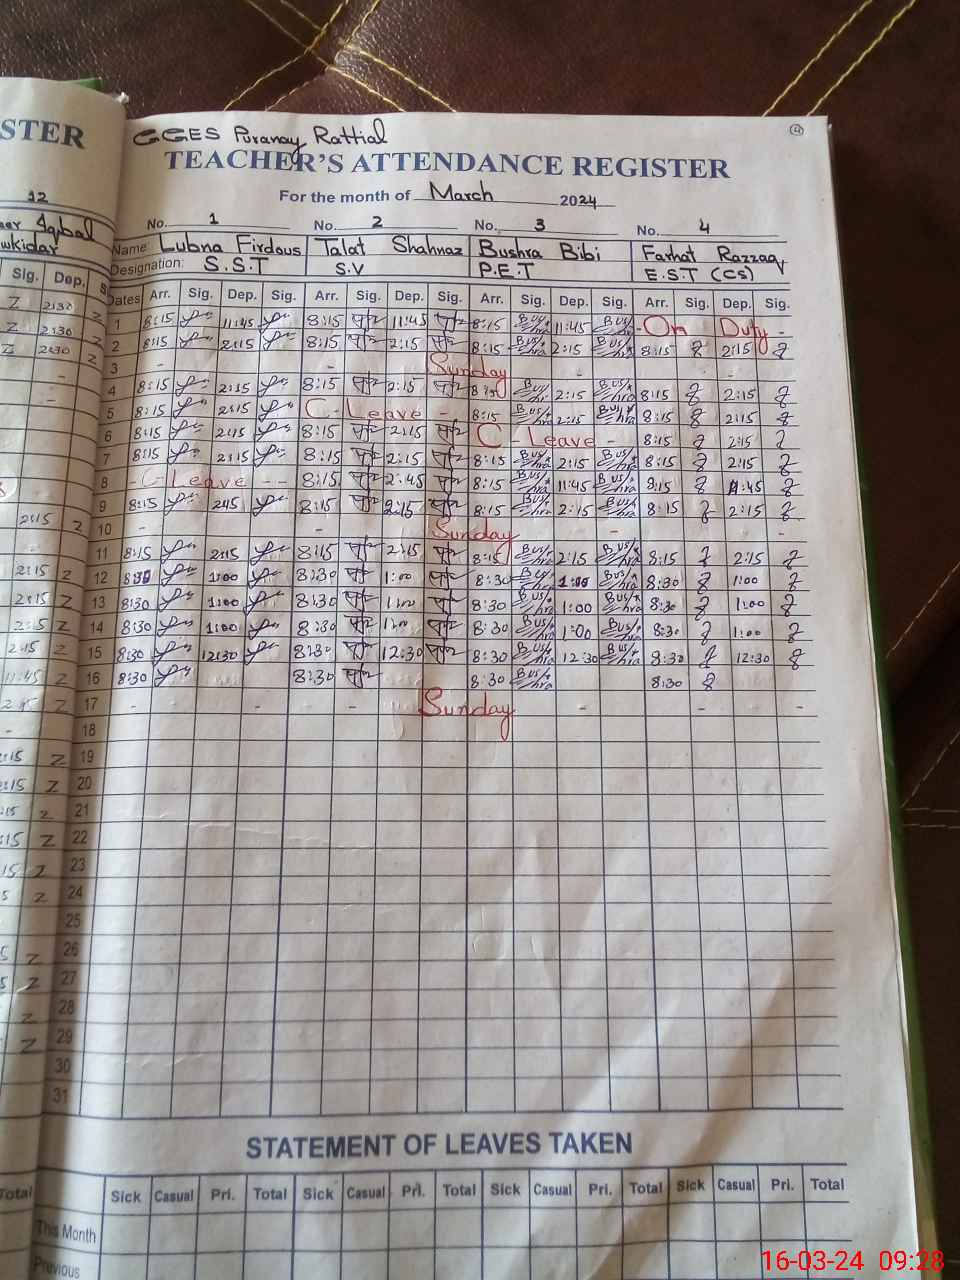 STER
GGES Puranay Rattial
4
TEACHER'S ATTENDANCE REGISTER
For the month of March 2024
12
No. 1 No. 2 No. 3 No. 4
Iqbal
wkidar
Name: Lubna Firdous Talat Shahnaz Bushra Bibi Farhat Razzaq
Designation: S.S.T S.V P.E.T E.S.T (CS)
Sig. Dep. S
Dates Arr. Sig. Dep. Sig. Arr. Sig. Dep. Sig. Arr. Sig. Dep. Sig. Arr. Sig. Dep. Sig.
Z 2:30 Z
1 8:15 11:45 8:15 11:45 8:15 Bus/hra 11:45 Bus/hra - On Duty -
Z 2:30 Z
2 8:15 2:15 8:15 2:15 8:15 Bus/hra 2:15 Bus/hra 8:15 2:15
Z 2:30 Z
3 - - Sunday - - - -
4 8:15 2:15 8:15 2:15 8:15 Bus/hra 2:15 Bus/hra 8:15 2:15
5 8:15 2:15 C - Leave - 8:15 Bus/hra 2:15 Bus/hra 8:15 2:15
6 8:15 2:15 8:15 2:15 C - Leave - 8:15 2:15
7 8:15 2:15 8:15 2:15 8:15 Bus/hra 2:15 Bus/hra 8:15 2:15
8 - C Leave - - 8:15 2:45 8:15 Bus/hra 11:45 Bus/hra 8:15 11:45
9 8:15 2:45 8:15 2:15 8:15 Bus/hra 2:15 Bus/hra 8:15 2:15
2:15 Z
10 - - Sunday - - -
11 8:15 2:15 8:15 2:15 8:15 Bus/hra 2:15 Bus/hra 8:15 2:15
2:15 Z
12 8:30 1:00 8:30 1:00 8:30 Bus/hra 1:00 Bus/hra 8:30 1:00
2:15 Z
13 8:30 1:00 8:30 1:00 8:30 Bus/hra 1:00 Bus/hra 8:30 1:00
2:15 Z
14 8:30 1:00 8:30 1:00 8:30 Bus/hra 1:00 Bus/hra 8:30 1:00
2:15 Z
15 8:30 12:30 8:30 12:30 8:30 Bus/hra 12:30 Bus/hra 8:30 12:30
11:45 Z
16 8:30 8:30 8:30 Bus/hra 8:30
2:15 Z
17 - - - - Sunday - - -
18
:15 Z
19
:15 Z
20
:15 Z
21
:15 Z
22
15 Z
23
5 Z
24
25
5 Z
26
5 Z
27
Z
28
Z
29
30
31
STATEMENT OF LEAVES TAKEN
Total Sick Casual Pri. Total Sick Casual Pri. Total Sick Casual Pri. Total Sick Casual Pri. Total
This Month
Previous
16-03-24 09:28